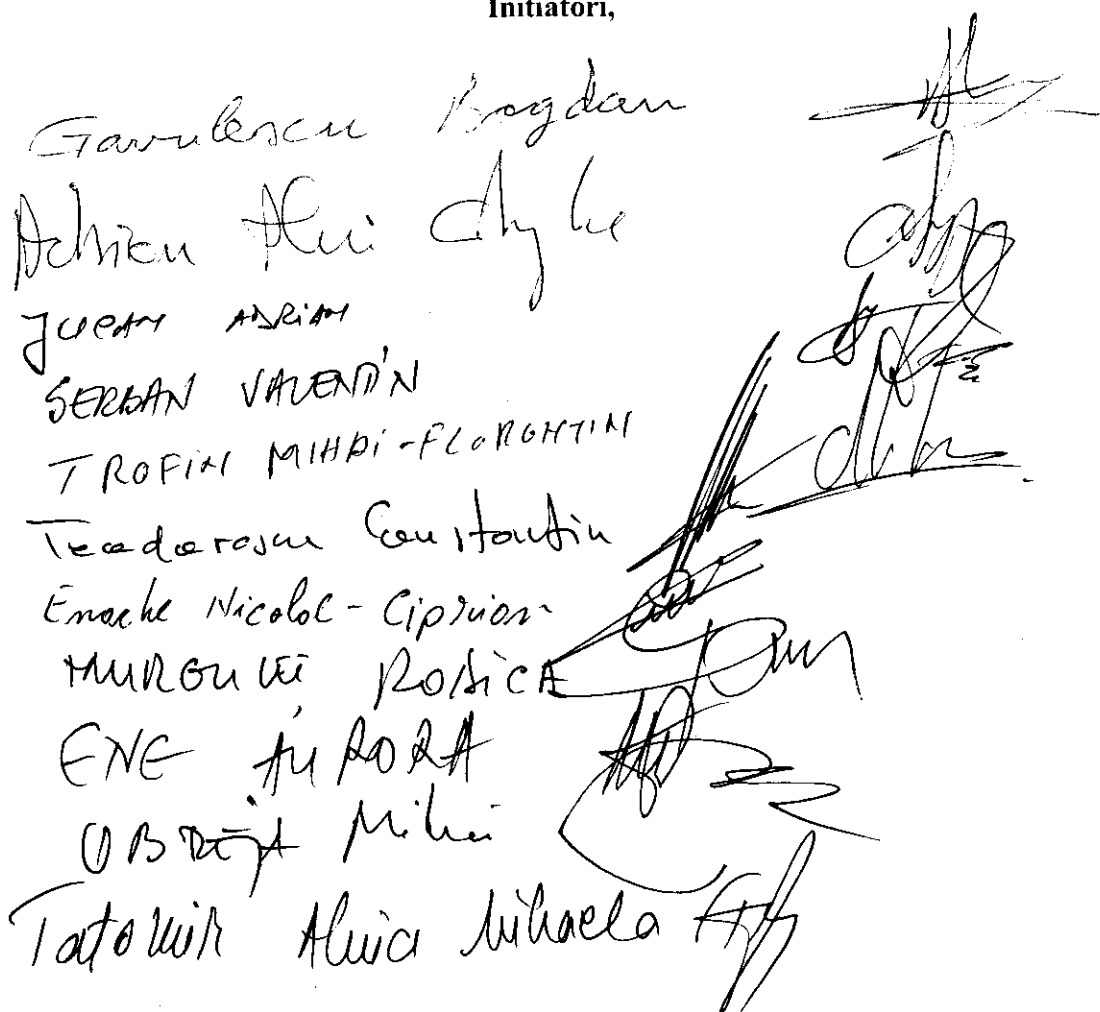 Initiatori,
Gavrilescu Bogdan
Adrian
JUPAN ADRIAN
SERBAN VALENTIN
TROFIN MIHAI-FLORENTIN
Teodorescu Constantin
Enache Nicolae-Ciprian
MURGULEȚ RODICA
ENE AURORA
OBREJA Mihai
Tatomir Alina Mihaela